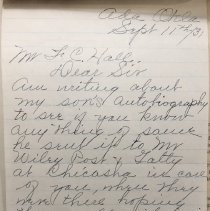 Ada, Okla
Sept 11
Mr F. C. Hall.
Dear Sir
Am writing about
my son's Autobiography
to see if you know
any thing of same
he sent it to Mr
Wiley Post & Gatty
at Chicasha in care
of you, when they
were there hoping